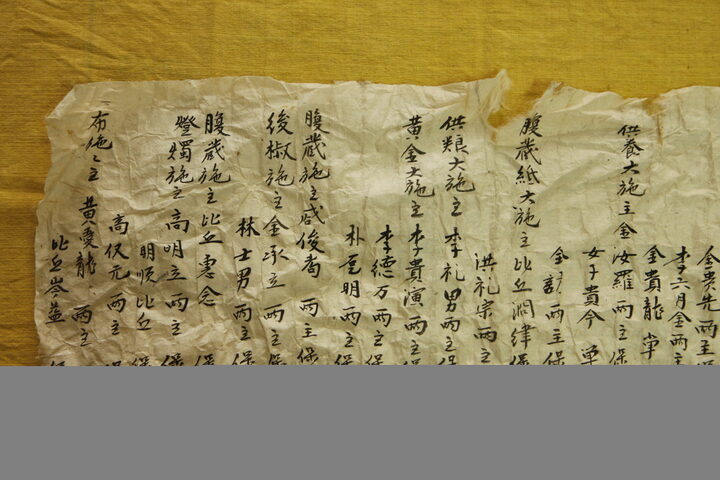 金貴先 兩主
李六月金兩主
金貴龍 单
供養大施主金汝羅 兩主保
女子貴今 单
金 兩主保
腹藏紙大施主比丘 律保
洪礼宗兩主
供粮大施主 李礼男兩主保
黄金大施主李貴演兩主保
李德万兩主保
朴 明兩主保
腹藏施主咸俊 兩主保
後椒施主金承立兩主保
林士男 兩主保
腹藏施主比丘惠念
燈燭施主高明立兩主保
明順比丘 保
高 元 兩主
布施之主 黄愛龍 兩主
比丘